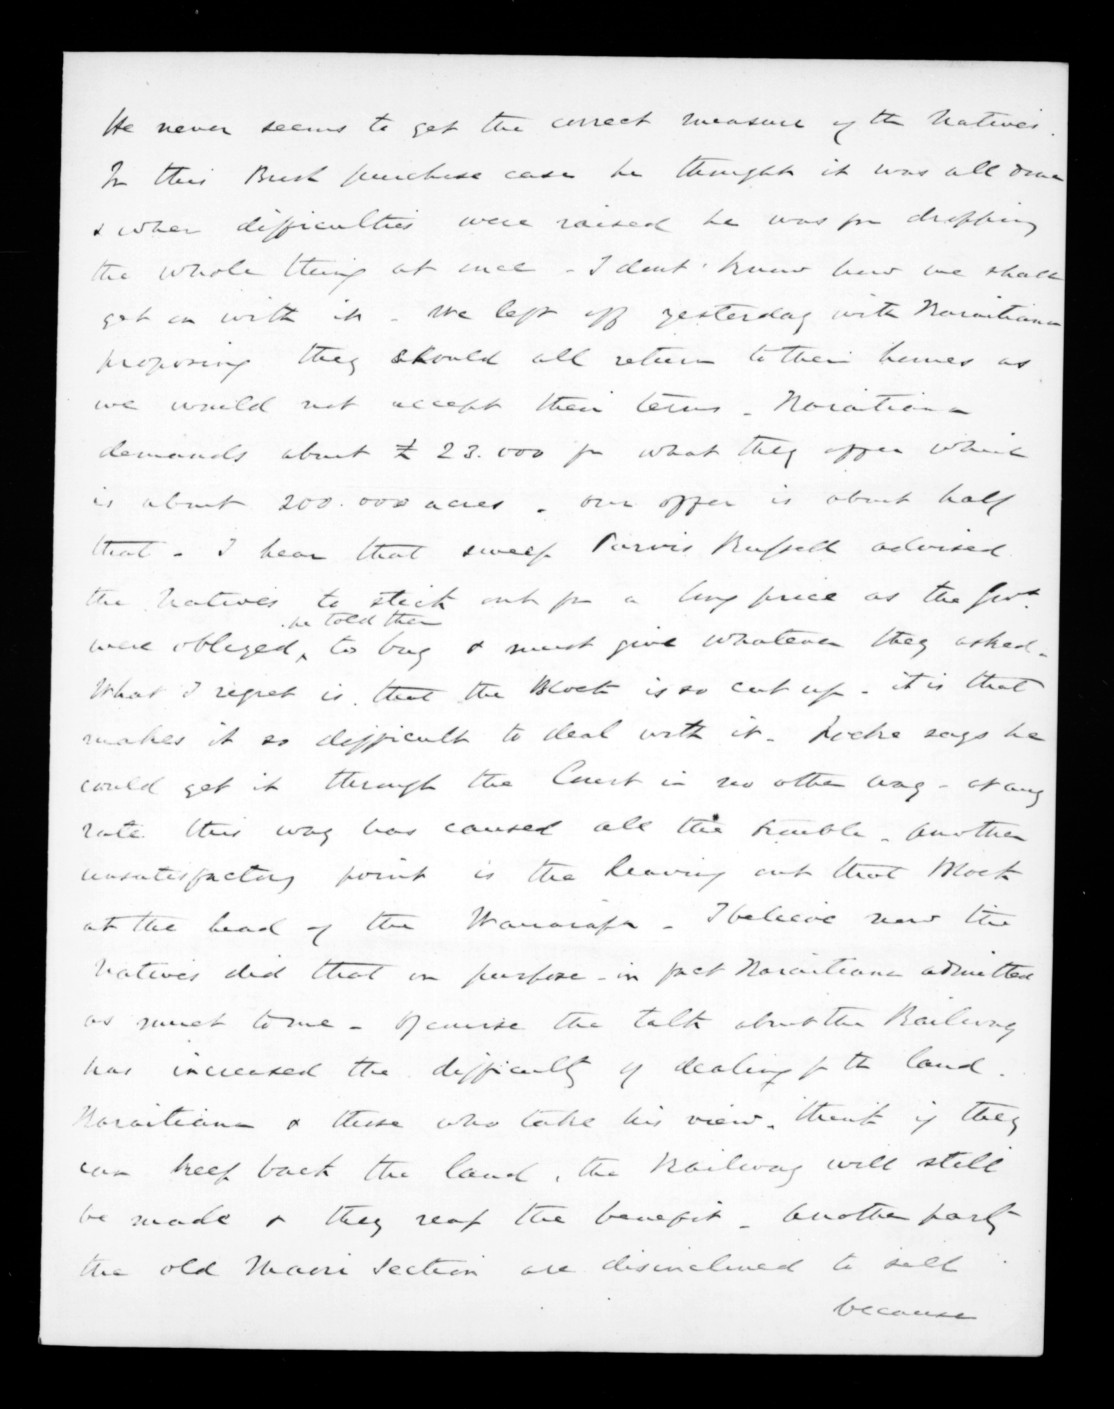 He never seems to get the correct measure of the Natives.
In this Bush purchase case he thought it was all done
& when difficulties were raised he was for dropping
the whole thing at once - I dont know how we shall
get on with it - We left off yesterday with Karaitiana
proposing they should all return to their homes as
we would not accept their terms - Karaitiana
demands about £23.000 for what they offer which
is about 200.000 acres - our offer is about half
that - I hear that sweep Purvis Russell advised
the Natives to stick out for a long price as the Govt.
he told them
were obliged, to buy & must give whatever they asked -
What I regret is that the Block is so cut up - it is that
makes it so difficult to deal with it - Locke says he
could get it through the Court in no other way - at any
rate this way has caused all the trouble - Another
unsatisfactory point is the leaving out that Block
at the head of the Wairarapa - I believe now the
Natives did that on purpose - in fact Karaitiana admitted
as much to me - Of course the talk about the Railway
has increased the difficulty of dealing for the land.
Karaitiana & those who take his view, think if they
can keep back the land, the Railway will still
be made & they reap the benefit - Another party
the old Maori section are disinclined to sell
because